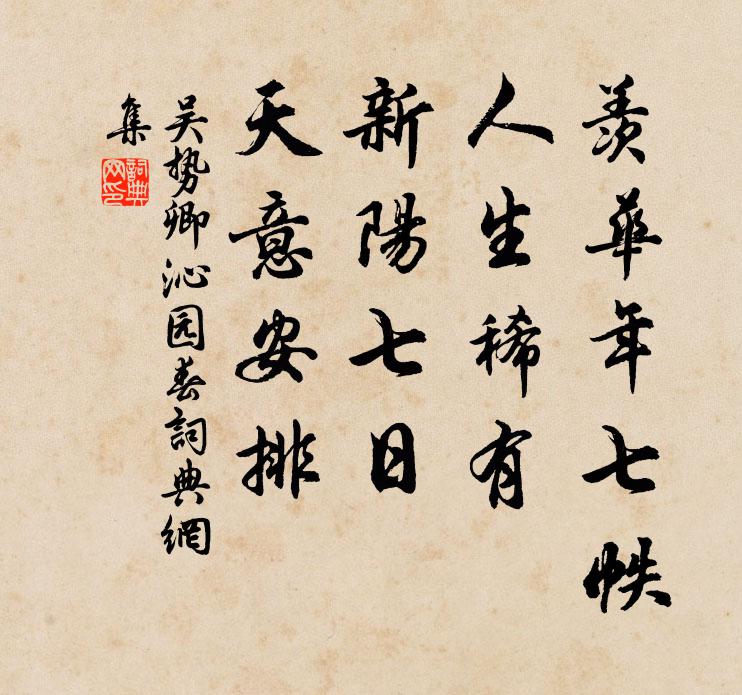 羨華年七帙
人生稀有
新陽七日
天意安排
吴势卿沁园春詞典網
集
詞典
网印